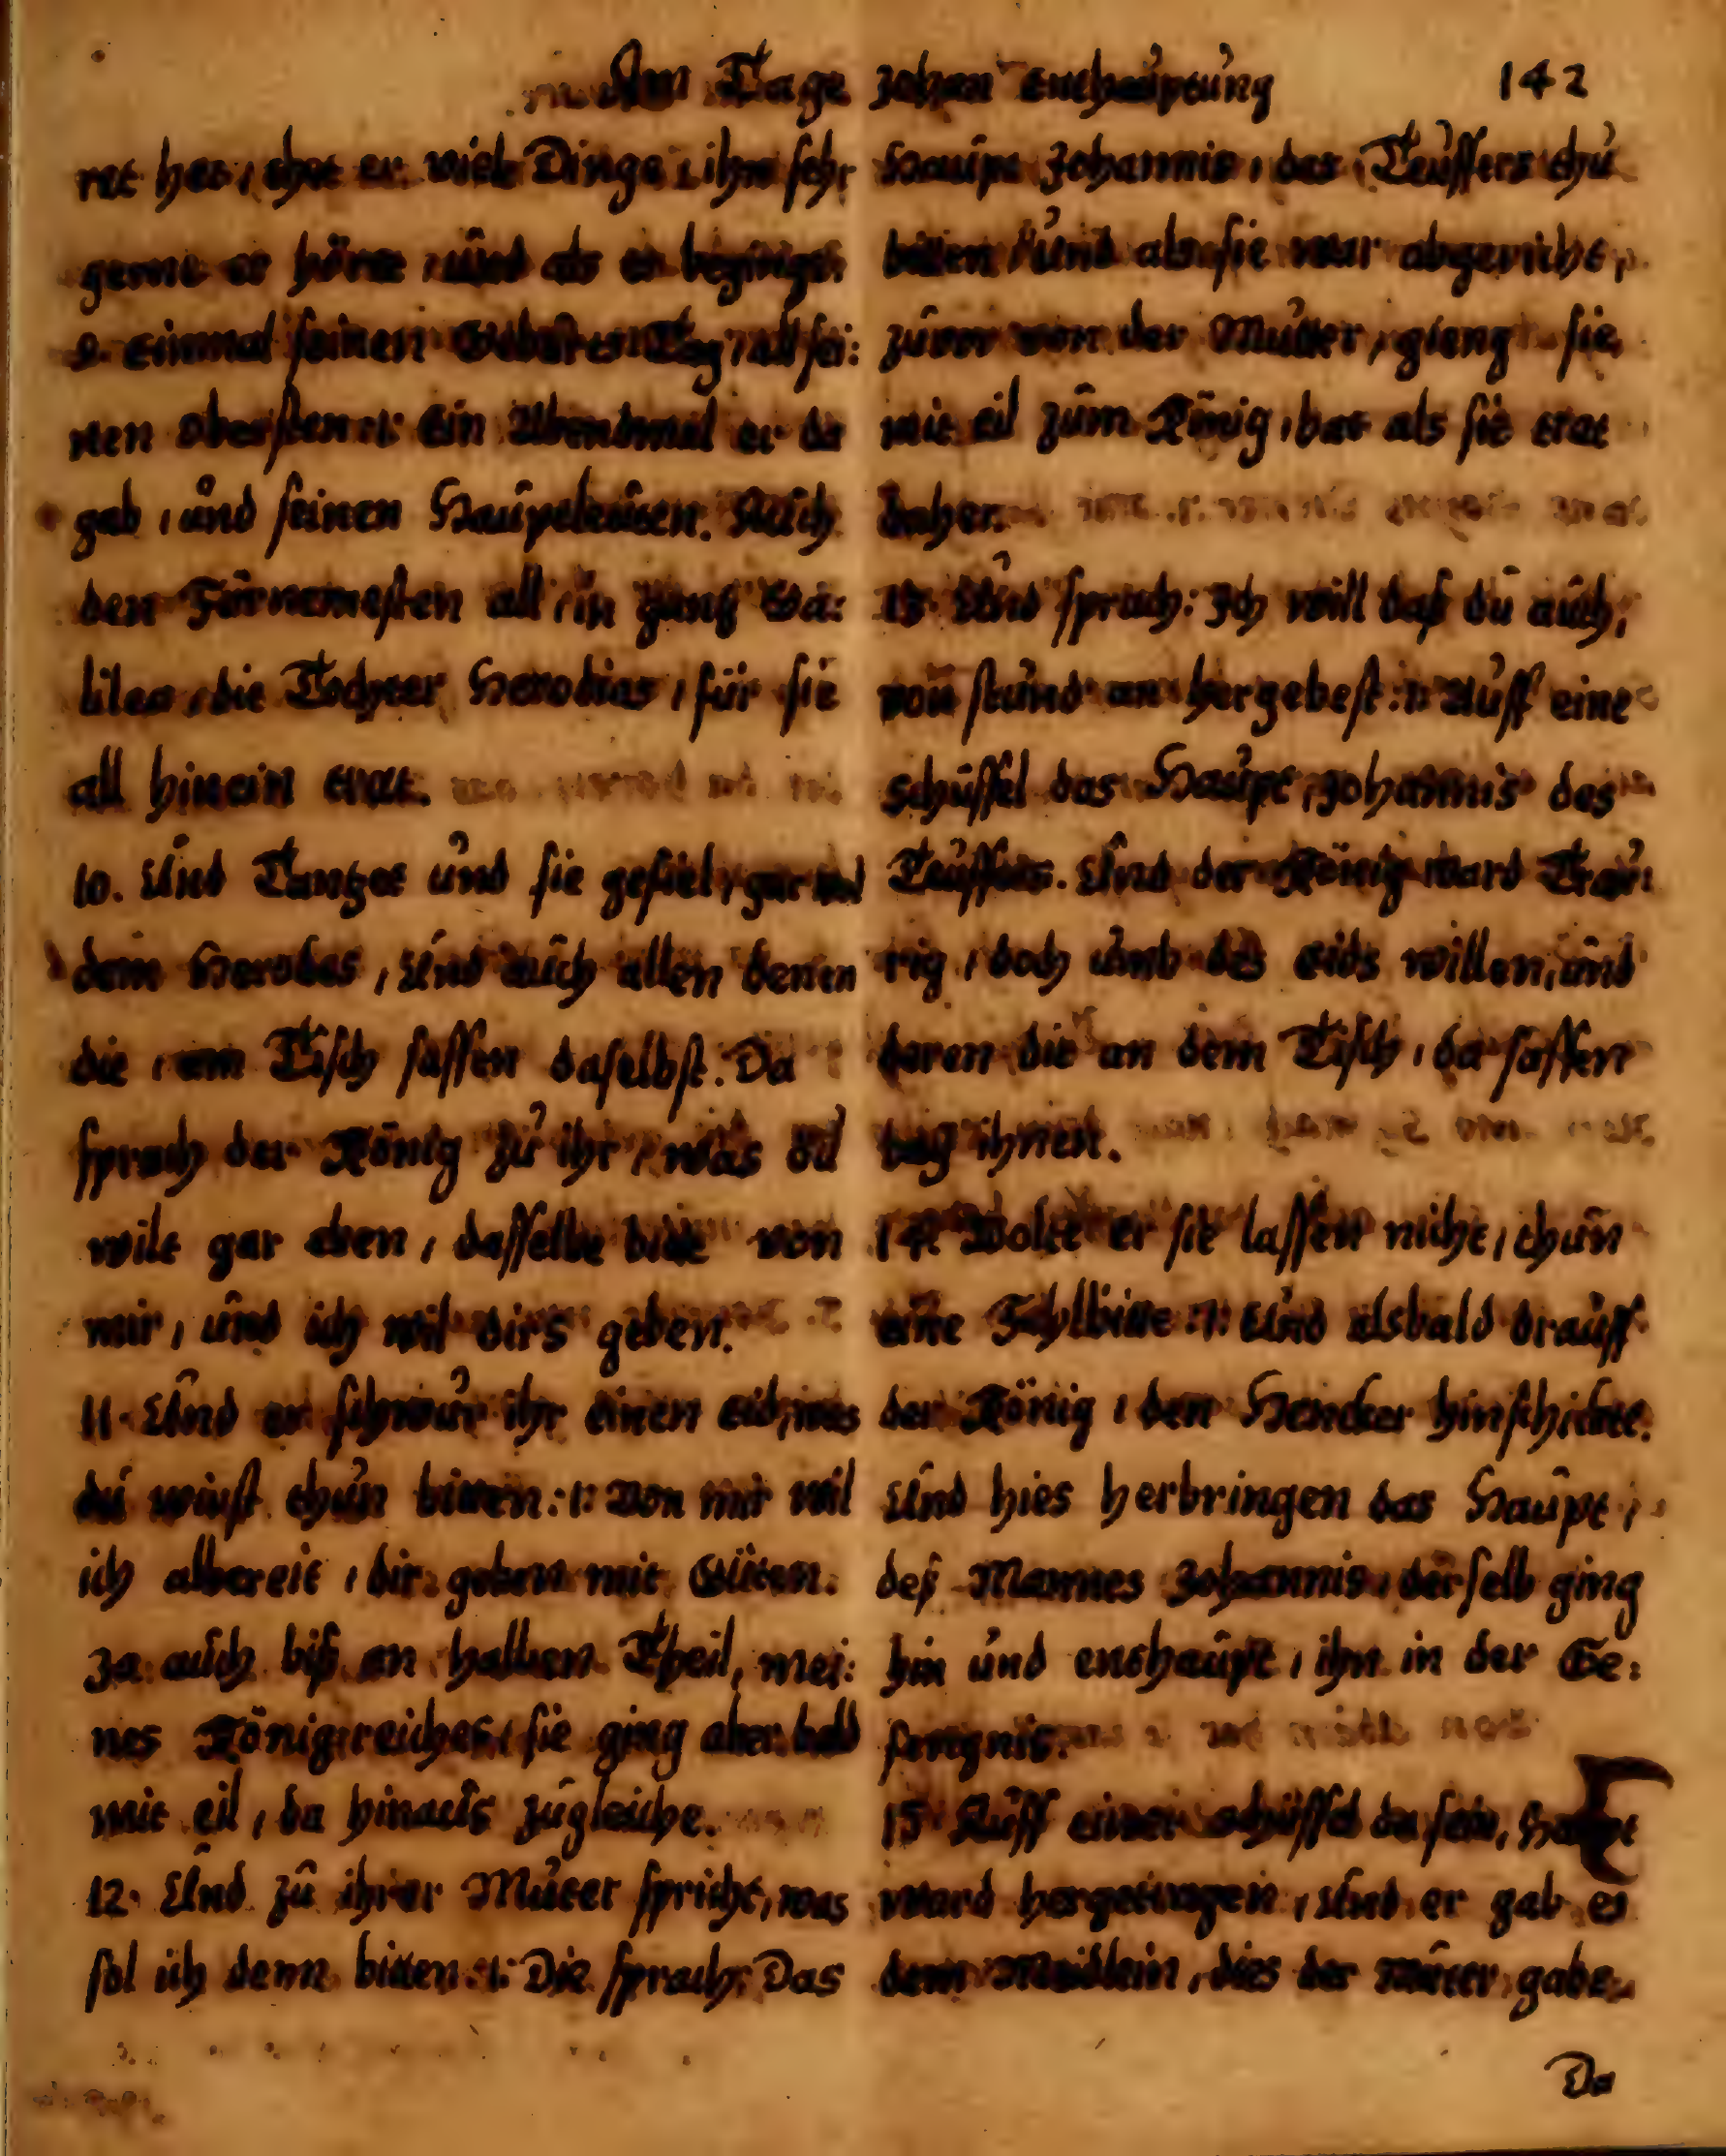 Am Tage Johan enthauptung 142
ret het, thet er viel Dinge, ihm sehr
gerne er höret, und als er beginget
9. einmal seinen Geburts Tag, all sei:
nen obersten :ı: Ein Abendmal er da
gab, und seinen Hauptleuten. Auch
den Fürnemesten all in gantz Ga:
lilea, die Tochter Herodias, für sie
all hinein trat.
10. Und Tantzet und sie gefiel, gar wol
dem Herodes, Und auch allen denen
die, am Tisch sassen daselbst. Da
sprach der König zu ihr, was du
wilt gar eben, dasselbe bitte von
mir, und ich wil dirs geben.
11. Und er schwur ihr einen eid, was
du wirst thun bitten :ı: Von mir wil
ich albereit, dir geben mit Güten.
Ja auch biß an halben Theil, mei:
nes Königreiches, sie ging aber bald
mit eil, da hinaus zugleiche.
12. Und zu ihrer Muter spricht, was
sol ich denn bitten :ı: Die sprach: Das
Haupt Johannis, des Teuffers thu
bitten, und als sie war abgericht,
zuvor von der Mutter, gieng sie
mit eil zum König, bat als sie trat
daher.
13. Und sprach: Ich will daß du auch,
von stund an hergebest :ı: Auff eine
schüssel das Haupt, Johannis des
Teuffers. Und der König ward Trau:
rig, doch umb des eids willen, und
deren die an dem Tisch, da sassen
bey ihnen.
14. Wolt er sie lassen nicht, thun
eine Fehlbitte :ı: Und alsbald drauff
der König, den Hencker hinschickte.
Und hies herbringen das Haupt,
deß Mannes Johannis, derselb ging
hin und enthaupt, ihn in der Ge:
fengnis.
15 Auff einer schüssel da sein, Haupt
ward hergetragen, Und er gab es
dem Meidlein, dies der Muter gabe.
Da